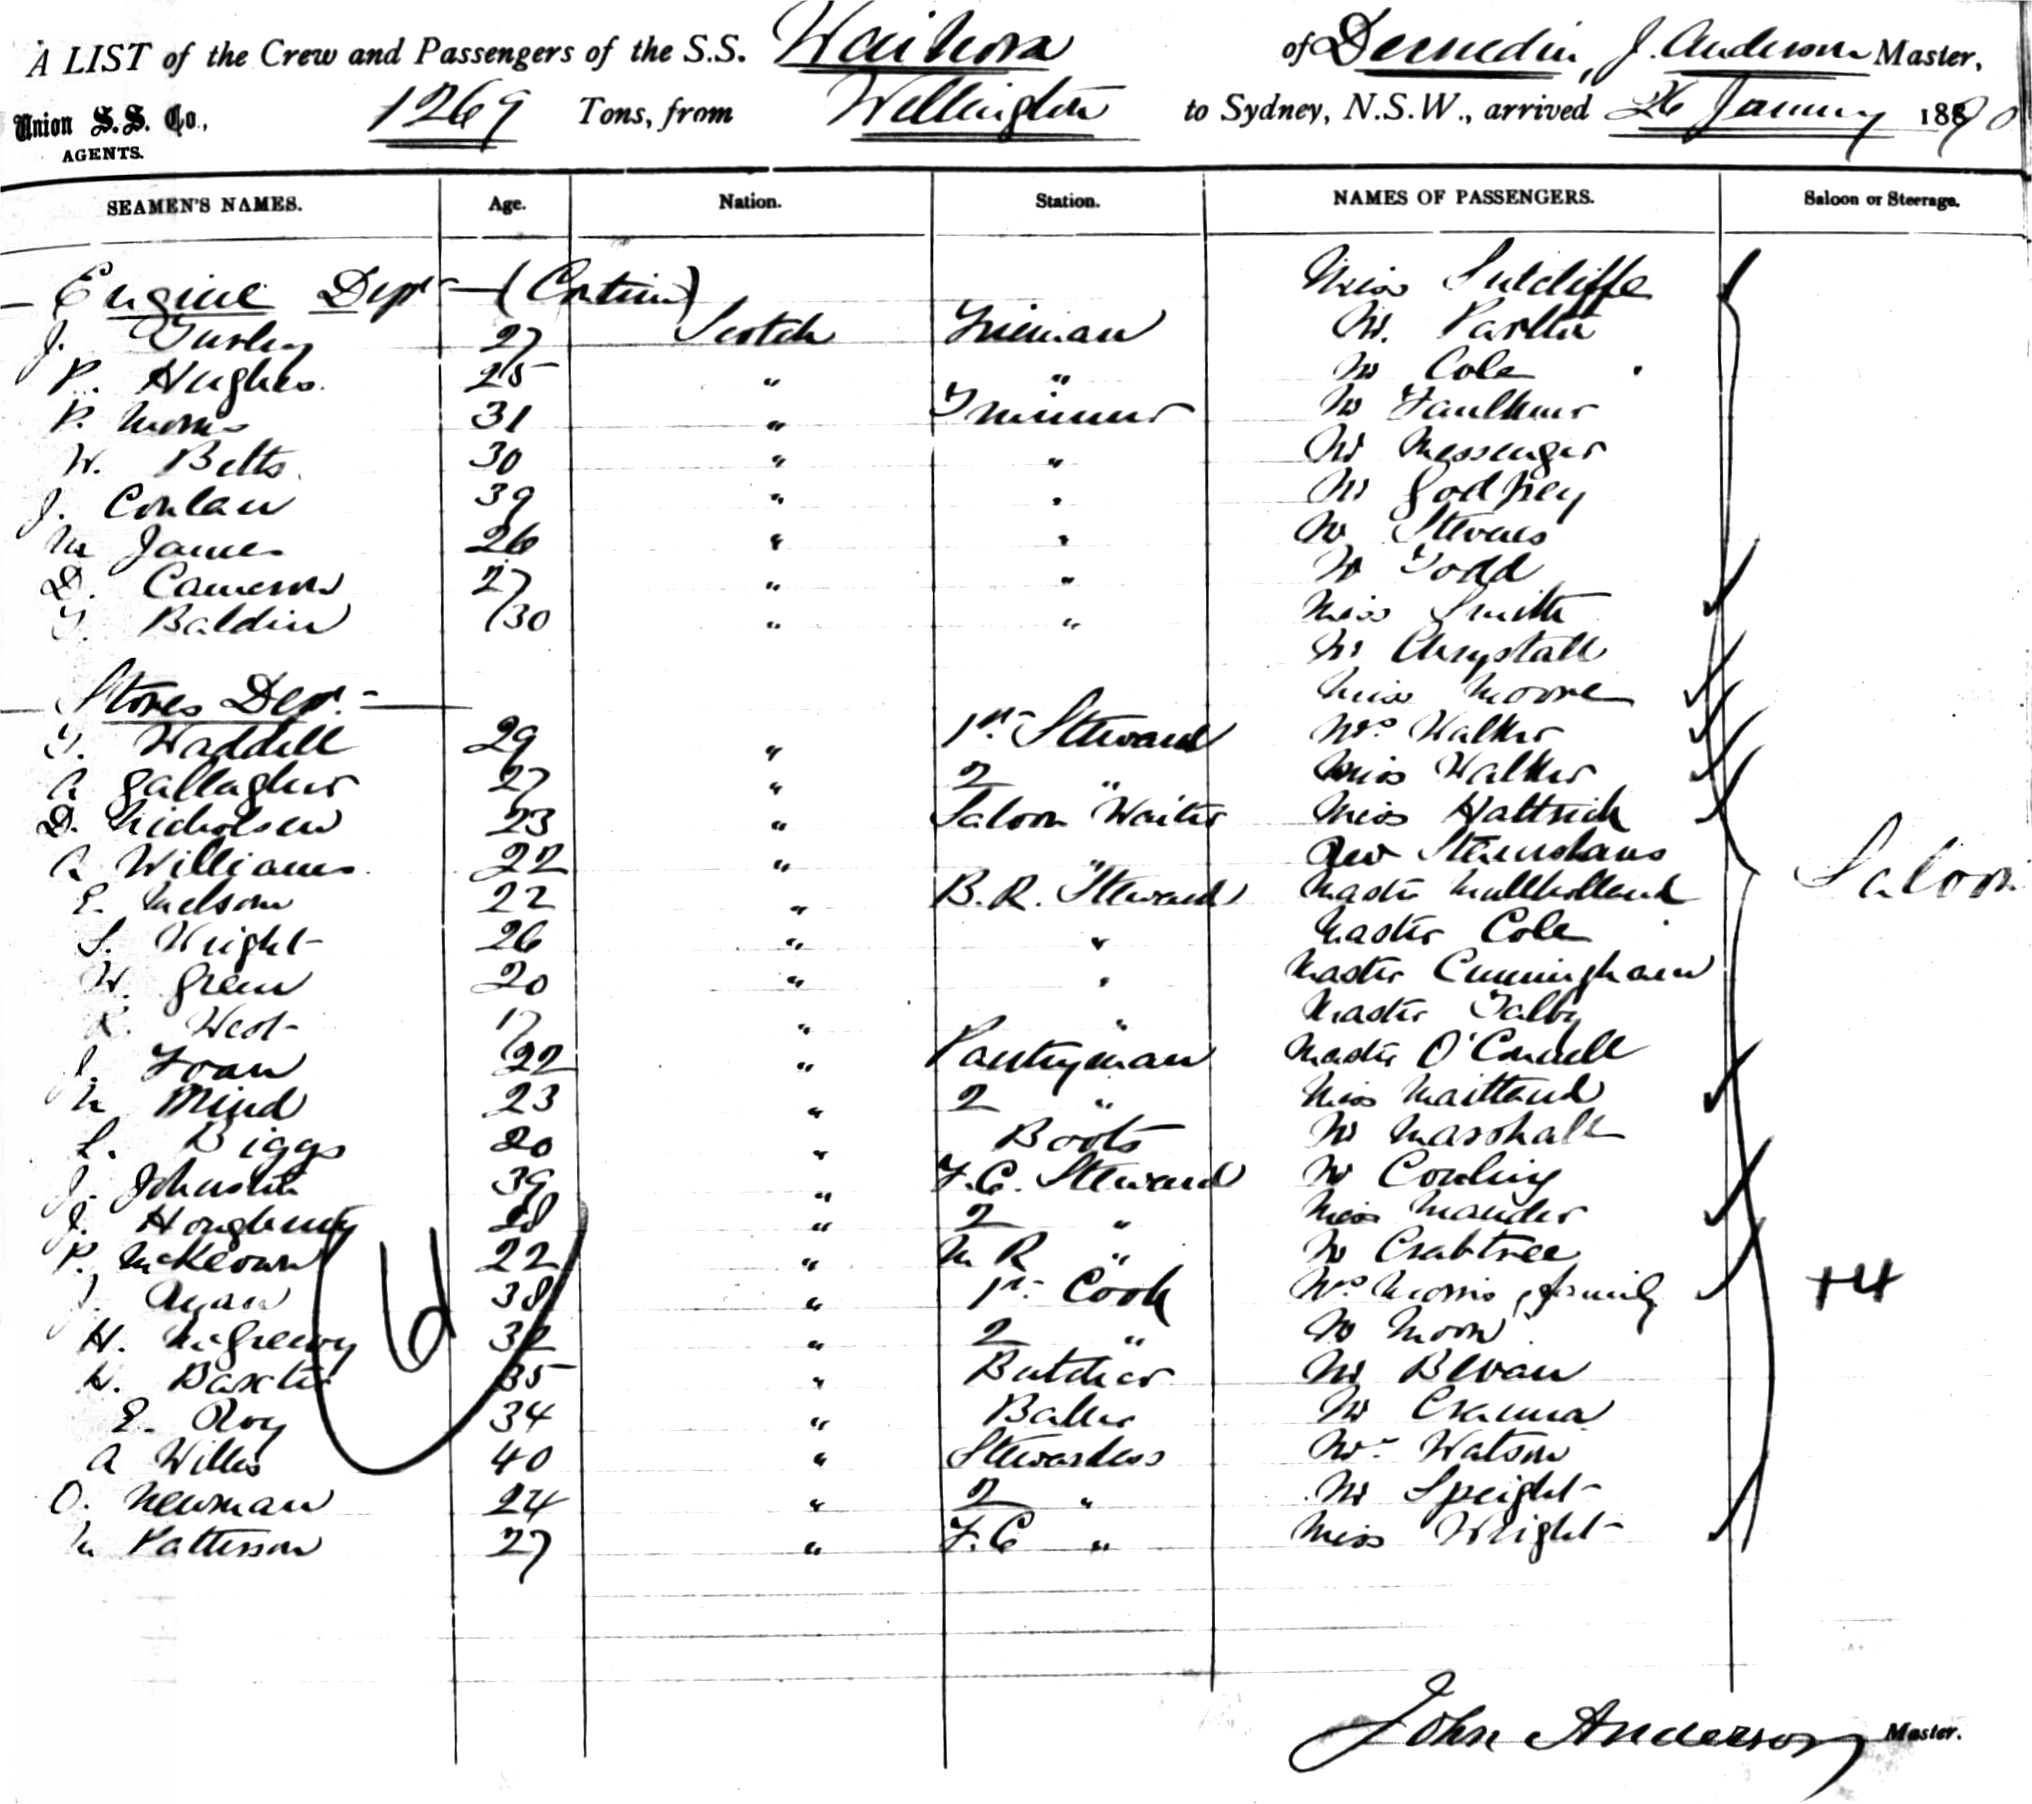 A LIST of the Crew and Passengers of the S.S. Waihora of Dunedin, J. Anderson Master,
Union S.S. Co., AGENTS. 1269 Tons, from Wellington to Sydney, N.S.W., arrived 26 January 1890
SEAMEN'S NAMES. Age. Nation. Station. NAMES OF PASSENGERS. Saloon or Steerage.
Miss Sutcliffe
Engine Dept (Contin)
J. 27 Scotch Fireman Mr.
P. Hughes. 25 " " Mr Cole
P. Morris 31 " Trimmer Mr Faulkner
W. Betts 30 " " Mr Messenger
J. Conlan 39 " " Mr Godfrey
M James 26 " " Mr Stevens
D. Cameron 27 " " Mr Todd
Baldin 30 " " Miss Smith
Mr Chrystall
Stores Dept. Miss Moore
Waddell 29 " 1st Steward Mrs Walker
A Gallagher 27 " 2 " Miss Walker
D. Nicholson 23 " Saloon Waiter Miss Hattrick
A Williams 22 " " Rev
E. Nelson 22 " B.R. Steward Master Mullholland
S. Wright 26 " " Master Cole
W. Green 20 " " Master Cunningham
R. West 17 " " Master Talby
22 " Pantryman Master O'Connell
23 " 2 " Miss Maitland
L. Biggs 20 " Boots Mr Marshall
J. Johnston 39 " F.C. Steward Mr Cowling
J. 28 " 2 " Miss Mander
P. McKeown 22 " M R " Mr Crabtree
J. Ryan 38 " 1st Cook Mrs Morris & family
H. McGreevy 32 " 2 " Mr Moon
Baxter 35 " Butcher Mr Bevan
E. Roy 34 " Baker Mr
A Willis 40 " Stewardess Mr Watson
O. Newman 24 " 2 " Mr Speight
Patterson 27 " F.C " Miss Wright
Saloon
+4
6
John Anderson Master.